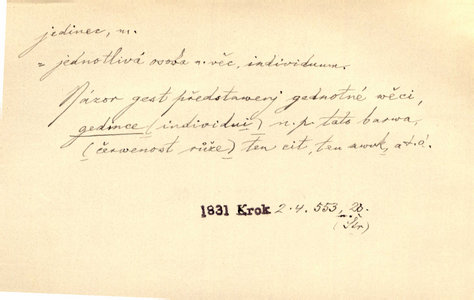 jedinec, m.
= jednotlivá osoba n. věc, individuum.
Názor gest předstawenj gednotné wěci,
gedince (individui) n. p. tato barwa,
(čerwenost růže) ten cit, ten zwuk, a t. d.
1831 Krok 2. 4. 553, 20.
(Šír)